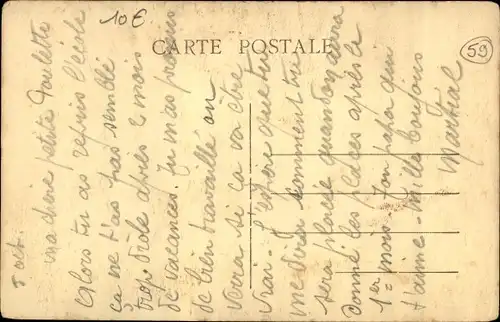 10€
CARTE POSTALE
59
5 oct.
ma chère petite Paulette
Alors tu as repris l'école
ça ne t'as pas semblé
trop drôle après 2 mois
de vacances. Tu m'as promis
de bien travailler on
verra si ça va être
vrai. J'espère que tu
me diras comment tu
sera placée quand on aura
donné les places après le
1er mois. Ton papa qui
t'aime. Mille toujours
Martial